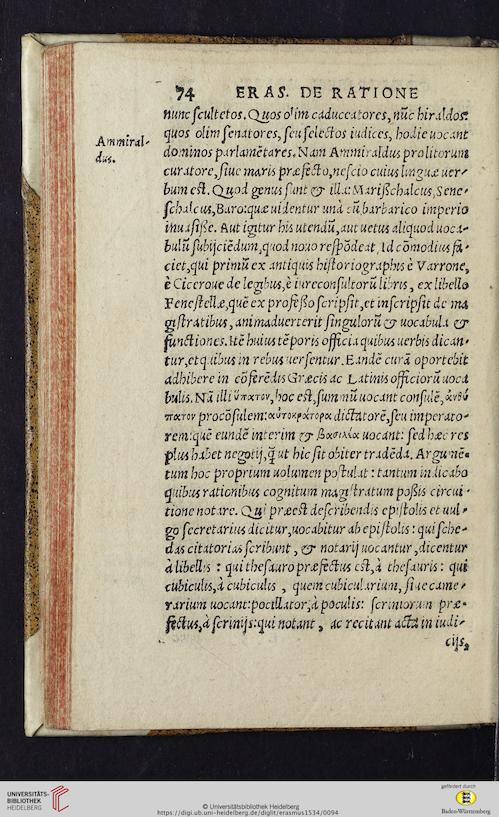 74 ERAS. DE RATIONE
nunc scultetos. Quos olim caduceatores, nũc hiraldos:
quos olim senatores, seu selectos iudices, hodie uocant
Ammiral-
dus.
dominos parlamẽtares. Nam Ammiraldus pro litorum
curatore, siue maris præfecto, nescio cuius linguæ uer-
bum est. Quod genus sunt & illæ Marißchalcus, Sene-
schalcus, Baro: quæ uidentur unà cũ barbarico imperio
inuasiße. Aut igitur his utendũ, aut uetus aliquod uoca-
bulũ subijciẽdum, quod nouo respõdeat. Id cõmodius fa-
ciet, qui primũ ex antiquis historiographis è Varrone,
è Cicerone de legibus, è iureconsultorũ libris, ex libello
Fenestellæ, quẽ ex profeßo scripsit, et inscripsit de ma
gistratibus, animaduerterit singulorũ & uocabula &
functiones. Itẽ huius tẽporis officia quibus uerbis dican-
tur, et quibus in rebus uersentur. Eandẽ curã oportebit
adhibere in cõferẽdis Græcis ac Latinis officiorũ uoca
bulis. Nã illi ὕπατον, hoc est, summũ uocant consulẽ, ἀνθύ
πατον procõsulem: αὐτοκράτορα dictatorẽ, seu imperato-
rem: quẽ eundẽ interim & βασιλέα uocant: sed hæc res
plus habet negotij, q̃ ut hic sit obiter tradẽda. Argumẽ-
tum hoc proprium uolumen postulat: tantum indicabo
quibus rationibus cognitum magistratum poßis circui-
tione notare. Qui præest describendis epistolis et uul-
go secretarius dicitur, uocabitur ab epistolis: qui sche-
das citatorias scribunt, & notarij uocantur, dicentur
à libellis: qui thesauro præfectus est, à thesauris: qui
cubiculis, à cubiculis, quem cubicularium, siue came-
rarium uocant: pocillator, à poculis: scriniorum præ-
fectus, à scrinijs: qui notant, ac recitant acta in iudi-
cijs,
UNIVERSITÄTS-
BIBLIOTHEK
HEIDELBERG
© Universitätsbibliothek Heidelberg
https://digi.ub.uni-heidelberg.de/diglit/erasmus1534/0094
gefördert durch
Baden-Württemberg